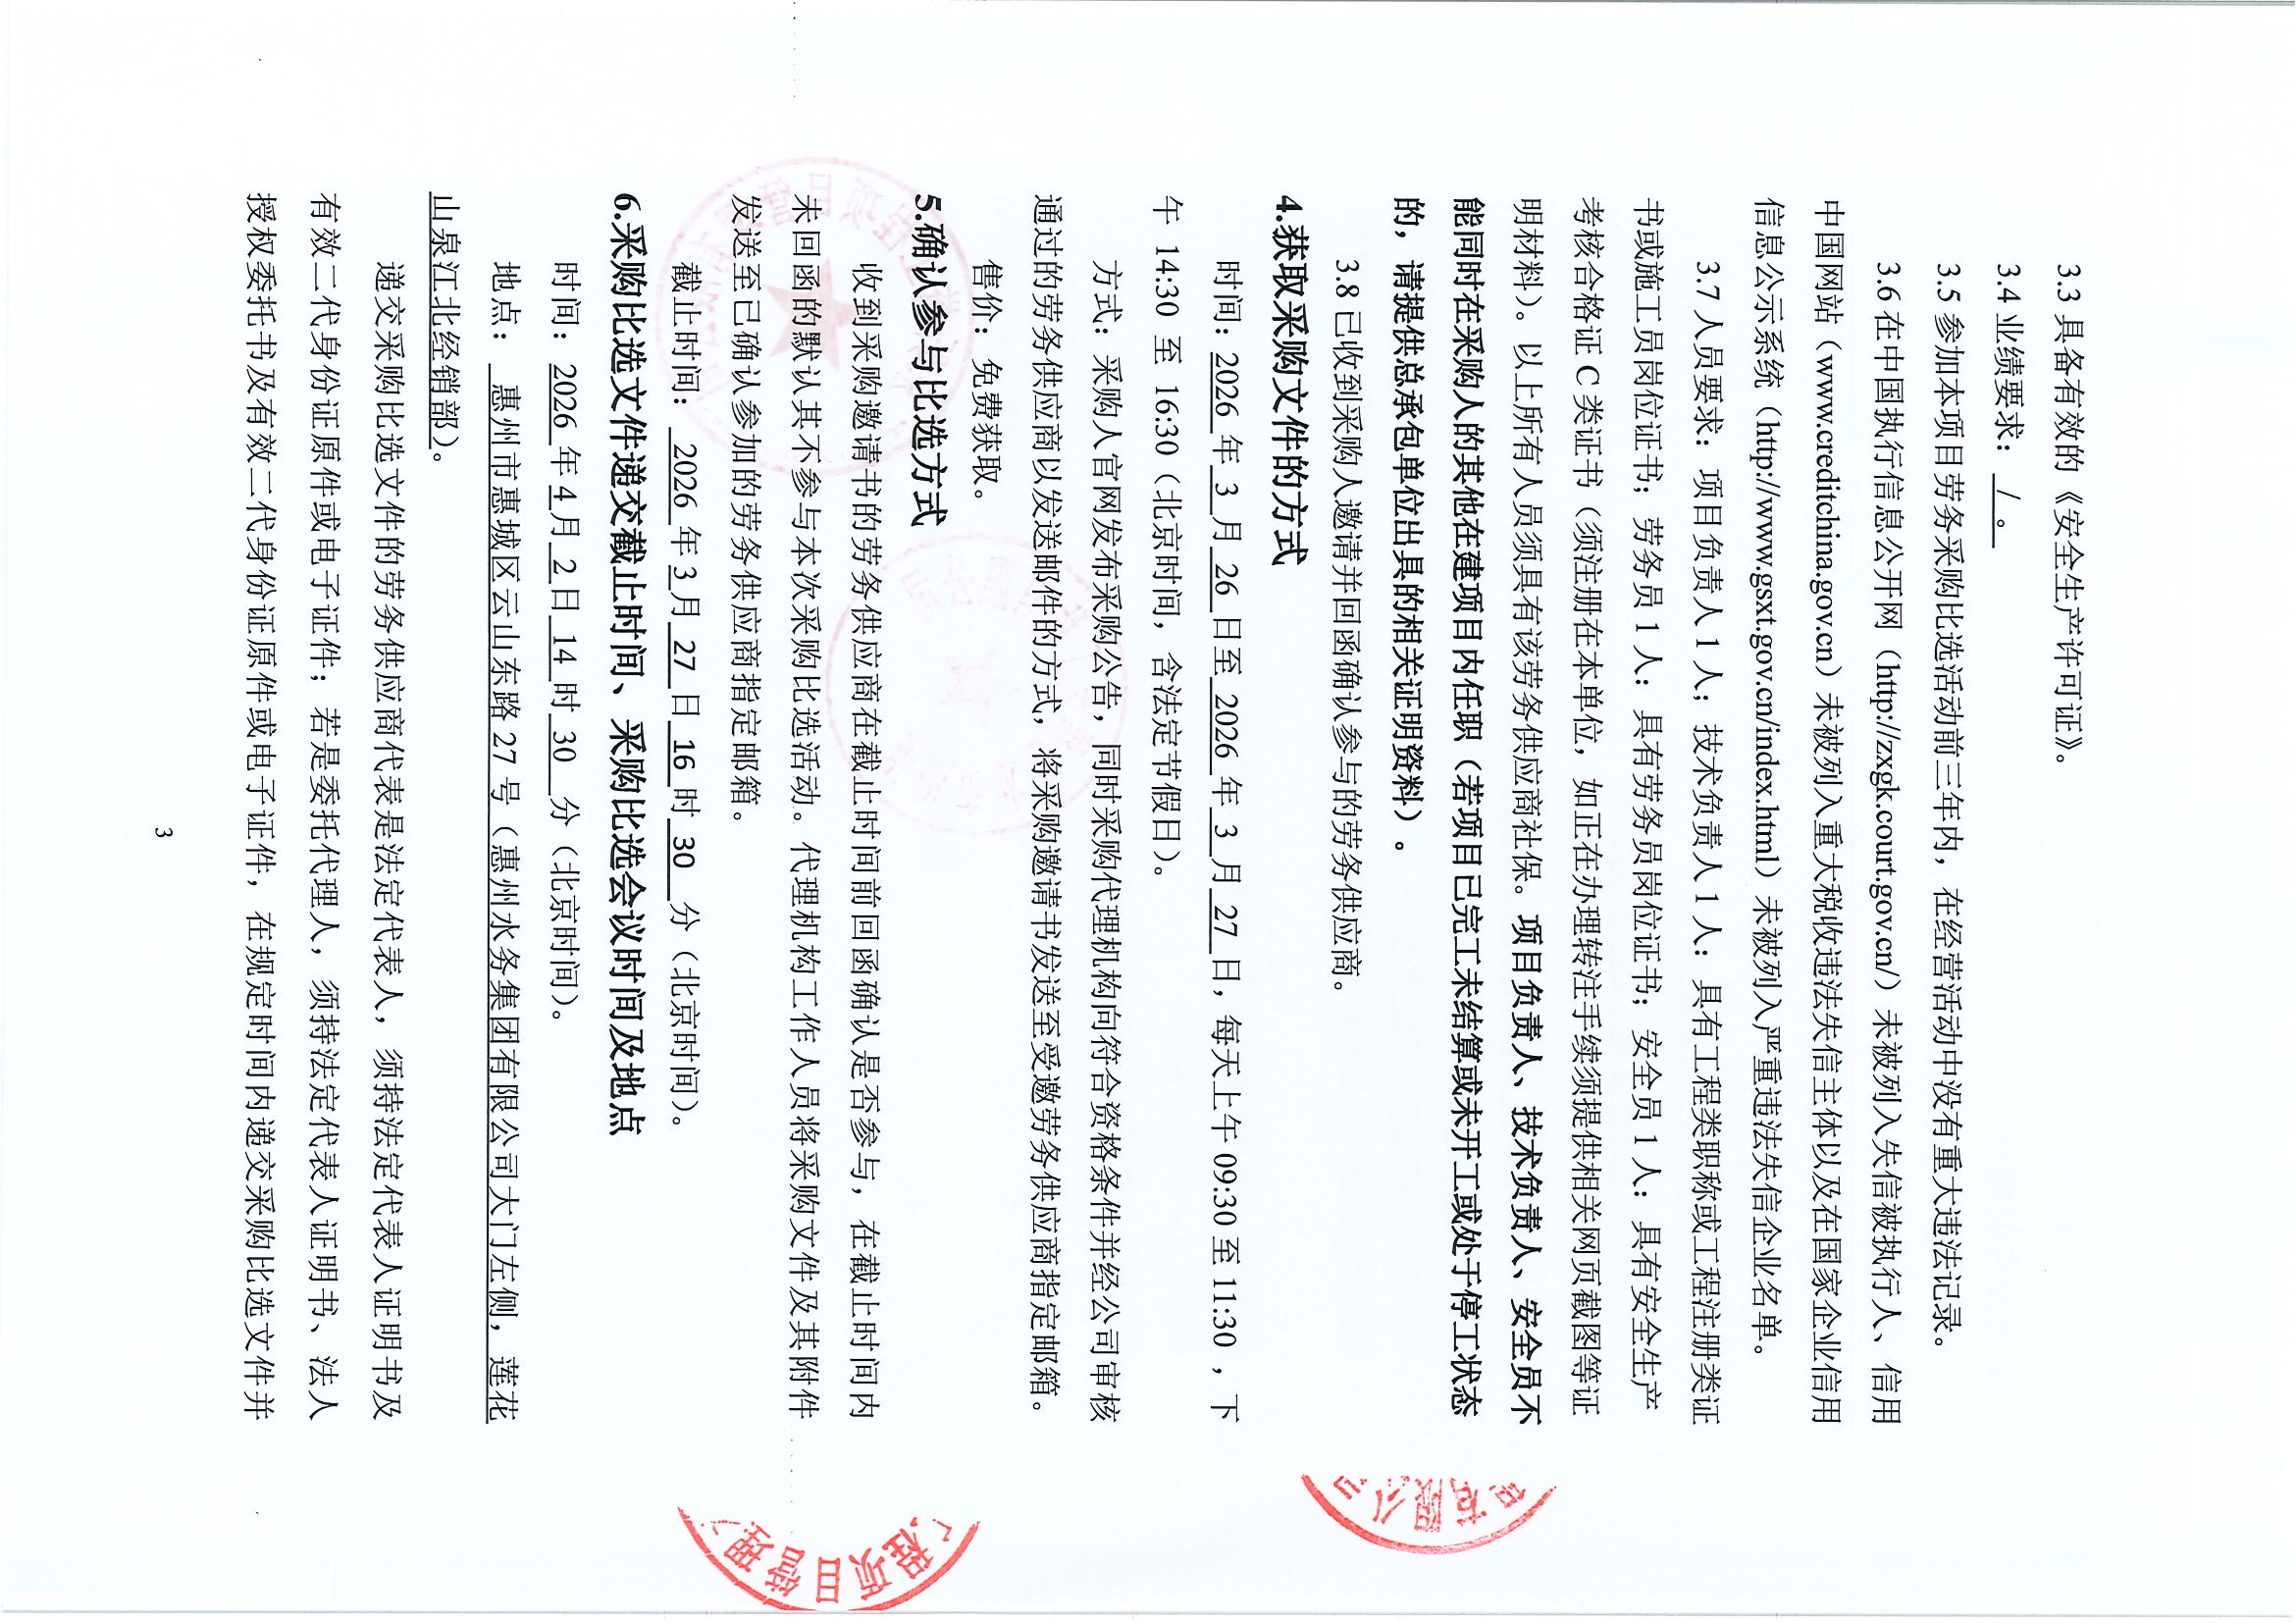 3.3 具备有效的《安全生产许可证》。
3.4 业绩要求： / 。
3.5 参加本项目劳务采购比选活动前三年内，在经营活动中没有重大违法记录。
3.6 在中国执行信息公开网（http://zxgk.court.gov.cn/）未被列入失信被执行人、信用
中国网站（www.creditchina.gov.cn）未被列入重大税收违法失信主体以及在国家企业信用
信息公示系统（http://www.gsxt.gov.cn/index.html）未被列入严重违法失信企业名单。
3.7 人员要求：项目负责人 1 人；技术负责人 1 人：具有工程类职称或工程注册类证
书或施工员岗位证书；劳务员 1 人：具有劳务员岗位证书；安全员 1 人：具有安全生产
考核合格证 C 类证书（须注册在本单位，如正在办理转注手续须提供相关网页截图等证
明材料）。以上所有人员须具有该劳务供应商社保。项目负责人、技术负责人、安全员不
能同时在采购人的其他在建项目内任职（若项目已完工未结算或未开工或处于停工状态
的，请提供总承包单位出具的相关证明资料）。
3.8 已收到采购人邀请并回函确认参与的劳务供应商。
4.获取采购文件的方式
时间：2026 年 3 月 26 日至 2026 年 3 月 27 日，每天上午 09:30 至 11:30 ，下
午 14:30 至 16:30（北京时间，含法定节假日）。
方式：采购人官网发布采购公告，同时采购代理机构向符合资格条件并经公司审核
通过的劳务供应商以发送邮件的方式，将采购邀请书发送至受邀劳务供应商指定邮箱。
售价：免费获取。
5.确认参与比选方式
收到采购邀请书的劳务供应商在截止时间前回函确认是否参与，在截止时间内
未回函的默认其不参与本次采购比选活动。代理机构工作人员将采购文件及其附件
发送至已确认参加的劳务供应商指定邮箱。
截止时间： 2026 年 3 月 27 日 16 时 30 分（北京时间）。
6.采购比选文件递交截止时间、采购比选会议时间及地点
时间：2026 年 4 月 2 日 14 时 30 分（北京时间）。
地点： 惠州市惠城区云山东路 27 号（惠州水务集团有限公司大门左侧，莲花
山泉江北经销部）。
递交采购比选文件的劳务供应商代表是法定代表人，须持法定代表人证明书及
有效二代身份证原件或电子证件；若是委托代理人，须持法定代表人证明书、法人
授权委托书及有效二代身份证原件或电子证件，在规定时间内递交采购比选文件并
3
有限公司
程项目管理